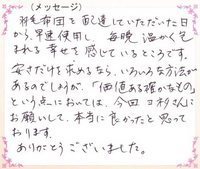 (メッセージ)
羽毛布団を配達していただいた日
から、早速使用し、毎晩温かく包
まれる幸せを感じているところです。
安さだけを求めるなら、いろいろな方法が
あるのでしょうが、「価値ある確かなもの」
という点においては、今回コオリさんに
お願いして、本当に良かったと思って
おります。
ありがとうございました。